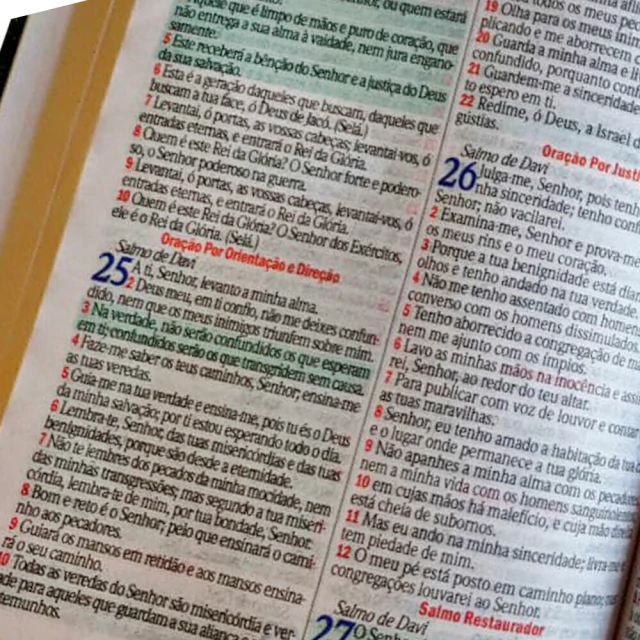 nhor, ou quem estará
Aquele que é limpo de mãos e puro de coração, que
não entrega a sua alma à vaidade, nem jura engano-
samente.
5 Este receberá a bênção do Senhor e a justiça do Deus
da sua salvação.
6 Esta é a geração daqueles que buscam, daqueles que
buscam a tua face, ó Deus de Jacó. (Selá.)
7 Levantai, ó portas, as vossas cabeças; levantai-vos, ó
entradas eternas, e entrará o Rei da Glória.
8 Quem é este Rei da Glória? O Senhor forte e podero-
so, o Senhor poderoso na guerra.
9 Levantai, ó portas, as vossas cabeças, levantai-vos, ó
entradas eternas, e entrará o Rei da Glória.
10 Quem é este Rei da Glória? O Senhor dos Exércitos,
ele é o Rei da Glória. (Selá.)
Oração Por Orientação e Direção
Salmo de Davi
25 A ti, Senhor, levanto a minha alma.
2 Deus meu, em ti confio, não me deixes confun-
dido, nem que os meus inimigos triunfem sobre mim.
3 Na verdade, não serão confundidos os que esperam
em ti; confundidos serão os que transgridem sem causa.
4 Faze-me saber os teus caminhos, Senhor; ensina-me
as tuas veredas.
5 Guia-me na tua verdade e ensina-me, pois tu és o Deus
da minha salvação; por ti estou esperando todo o dia.
6 Lembra-te, Senhor, das tuas misericórdias e das tuas
benignidades, porque são desde a eternidade.
7 Não te lembres dos pecados da minha mocidade, nem
das minhas transgressões; mas segundo a tua miseri-
córdia, lembra-te de mim, por tua bondade, Senhor.
8 Bom e reto é o Senhor; pelo que ensinará o cami-
nho aos pecadores.
9 Guiará os mansos em retidão e aos mansos ensina-
rá o seu caminho.
10 Todas as veredas do Senhor são misericórdia e ver-
ade para aqueles que guardam a sua aliança
temunhos.
19 Olha para os meus ini
plicando e me aborrecem c
20 Guarda a minha alma e l
confundido, porquanto conf
21 Guardem-me a sinceridade
to espero em ti.
22 Redime, ó Deus, a Israel d
gústias.
Oração Por Justi
Salmo de Davi
26 Julga-me, Senhor, pois tenh
nha sinceridade; tenho confi
Senhor; não vacilarei.
2 Examina-me, Senhor e prova-me
os meus rins e o meu coração.
3 Porque a tua benignidade está dia
olhos e tenho andado na tua verdade.
4 Não me tenho assentado com homens
converso com os homens dissimulados
5 Tenho aborrecido a congregação de ma
nem me ajunto com os ímpios.
6 Lavo as minhas mãos na inocência e assi
rei, Senhor, ao redor do teu altar.
7 Para publicar com voz de louvor e contar
as tuas maravilhas.
8 Senhor, eu tenho amado a habitação da tua
e o lugar onde permanece a tua glória.
9 Não apanhes a minha alma com os pecado
nem a minha vida com os homens sanguinolen
10 em cujas mãos há malefício, e cuja mão direi
está cheia de subornos.
11 Mas eu ando na minha sinceridade; livra-me e
tem piedade de mim.
12 O meu pé está posto em caminho plano; nas
congregações louvarei ao Senhor.
Salmo Restaurador
Salmo de Davi
27 O Senh